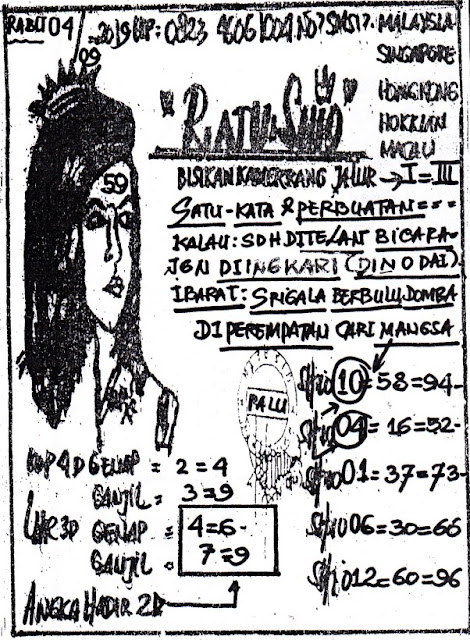 RABU 04
2019 HP: 0823 4606 1004 NO? SMS!?
MALAYSIA
SINGAPORE
HONGKONG
HOKKIAN
MACAU
09
59
"RATU SHIO"
BISIKAN KAMERRANG JALUR → I = III
SATU-KATA & PERBUATAN===
KALAU: SDH DITELAN BICARA-
JGN DIINGKARI (DINODAI).
IBARAT: SRIGALA BERBULU DOMBA
DI PEREMPATAN CARI MANGSA
PALU
Shio 10 = 58 = 94-
Shio 04 = 16 = 52-
Shio 01 = 37 = 73-
Shio 06 = 30 = 66
Shio 12 = 60 = 96
KOP 4D GENAP = 2 = 4
GANJIL = 3 = 9
3D GENAP = 4=6-
GANJIL = 7=9
ANGKA HADIR 2D